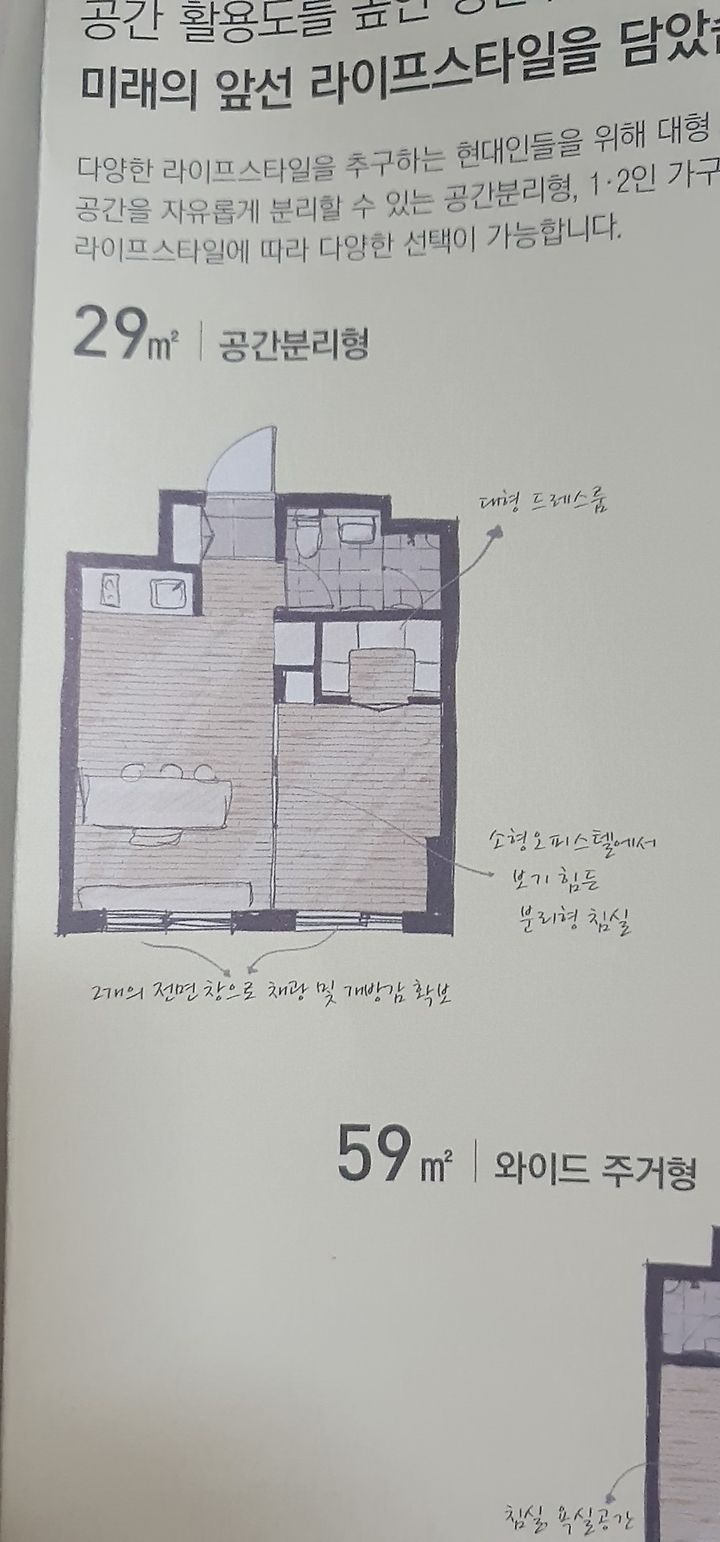 공간 활용도를 높인
미래의 앞선 라이프스타일을 담았습
다양한 라이프스타일을 추구하는 현대인들을 위해 대형
공간을 자유롭게 분리할 수 있는 공간분리형, 1·2인 가구
라이프스타일에 따라 다양한 선택이 가능합니다.
29㎡ | 공간분리형
대형 드레스룸
소형오피스텔에서
보기 힘든
분리형 침실
2개의 전면 창으로 채광 및 개방감 확보
59㎡ | 와이드 주거형
침실, 욕실공간